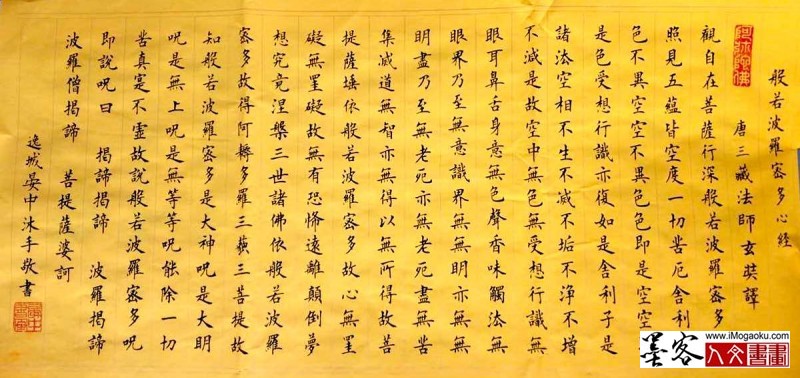 般若波羅蜜多心經
唐三藏法師玄奘譯
阿弥陀佛
觀自在菩薩行深般若波羅蜜多
照見五蘊皆空度一切苦厄舍利
色不異空空不異色色即是空空
是色受想行識亦復如是舍利子是
諸法空相不生不滅不垢不淨不增
不減是故空中無色無受想行識無
眼耳鼻舌身意無色聲香味觸法無
眼界乃至無意識界無無明亦無無
明盡乃至無老死亦無老死盡無苦
集滅道無智亦無得以無所得故菩
提薩埵依般若波羅蜜多故心無罣
礙無罣礙故無有恐怖遠離顛倒夢
想究竟涅槃三世諸佛依般若波羅
蜜多故得阿耨多羅三藐三菩提故
知般若波羅蜜多是大神呪是大明
呪是無上呪是無等等呪能除一切
苦真寔不虛故說般若波羅蜜多呪
即說呪曰 揭諦揭諦 波羅揭諦
波羅僧揭諦 菩提薩婆訶
逸城晏中沐手敬書
www.iMogaoku.com
墨客人文書畫